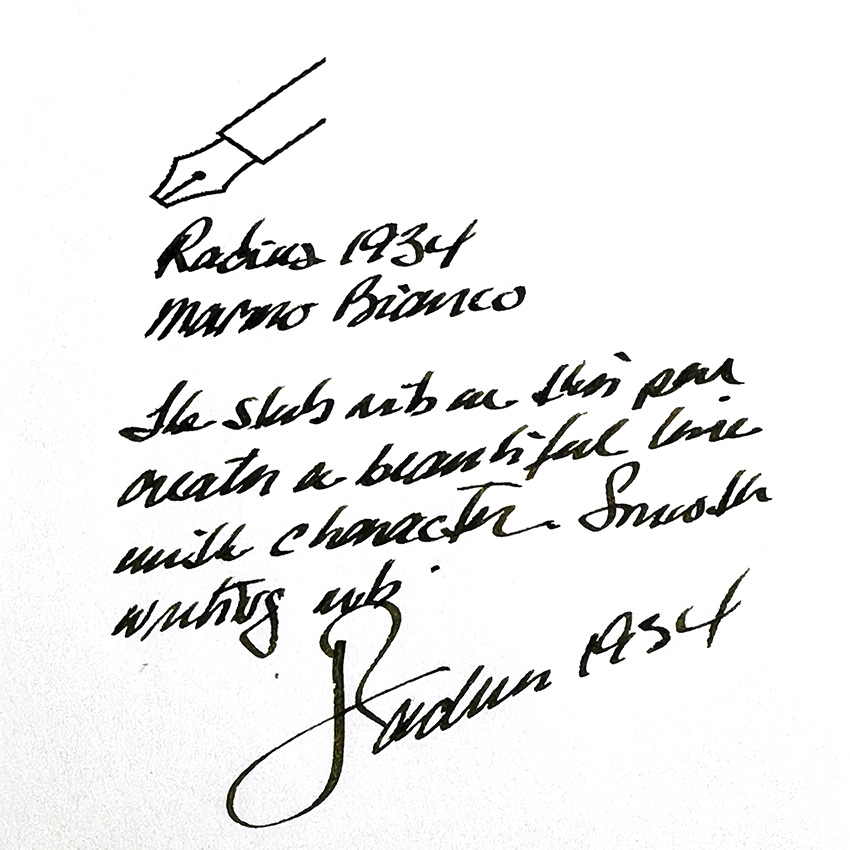 Radius 1934
Marmo Bianco
The stub nib on this pen
creates a beautiful line
with character. Smooth
writing nib.
Radius 1934